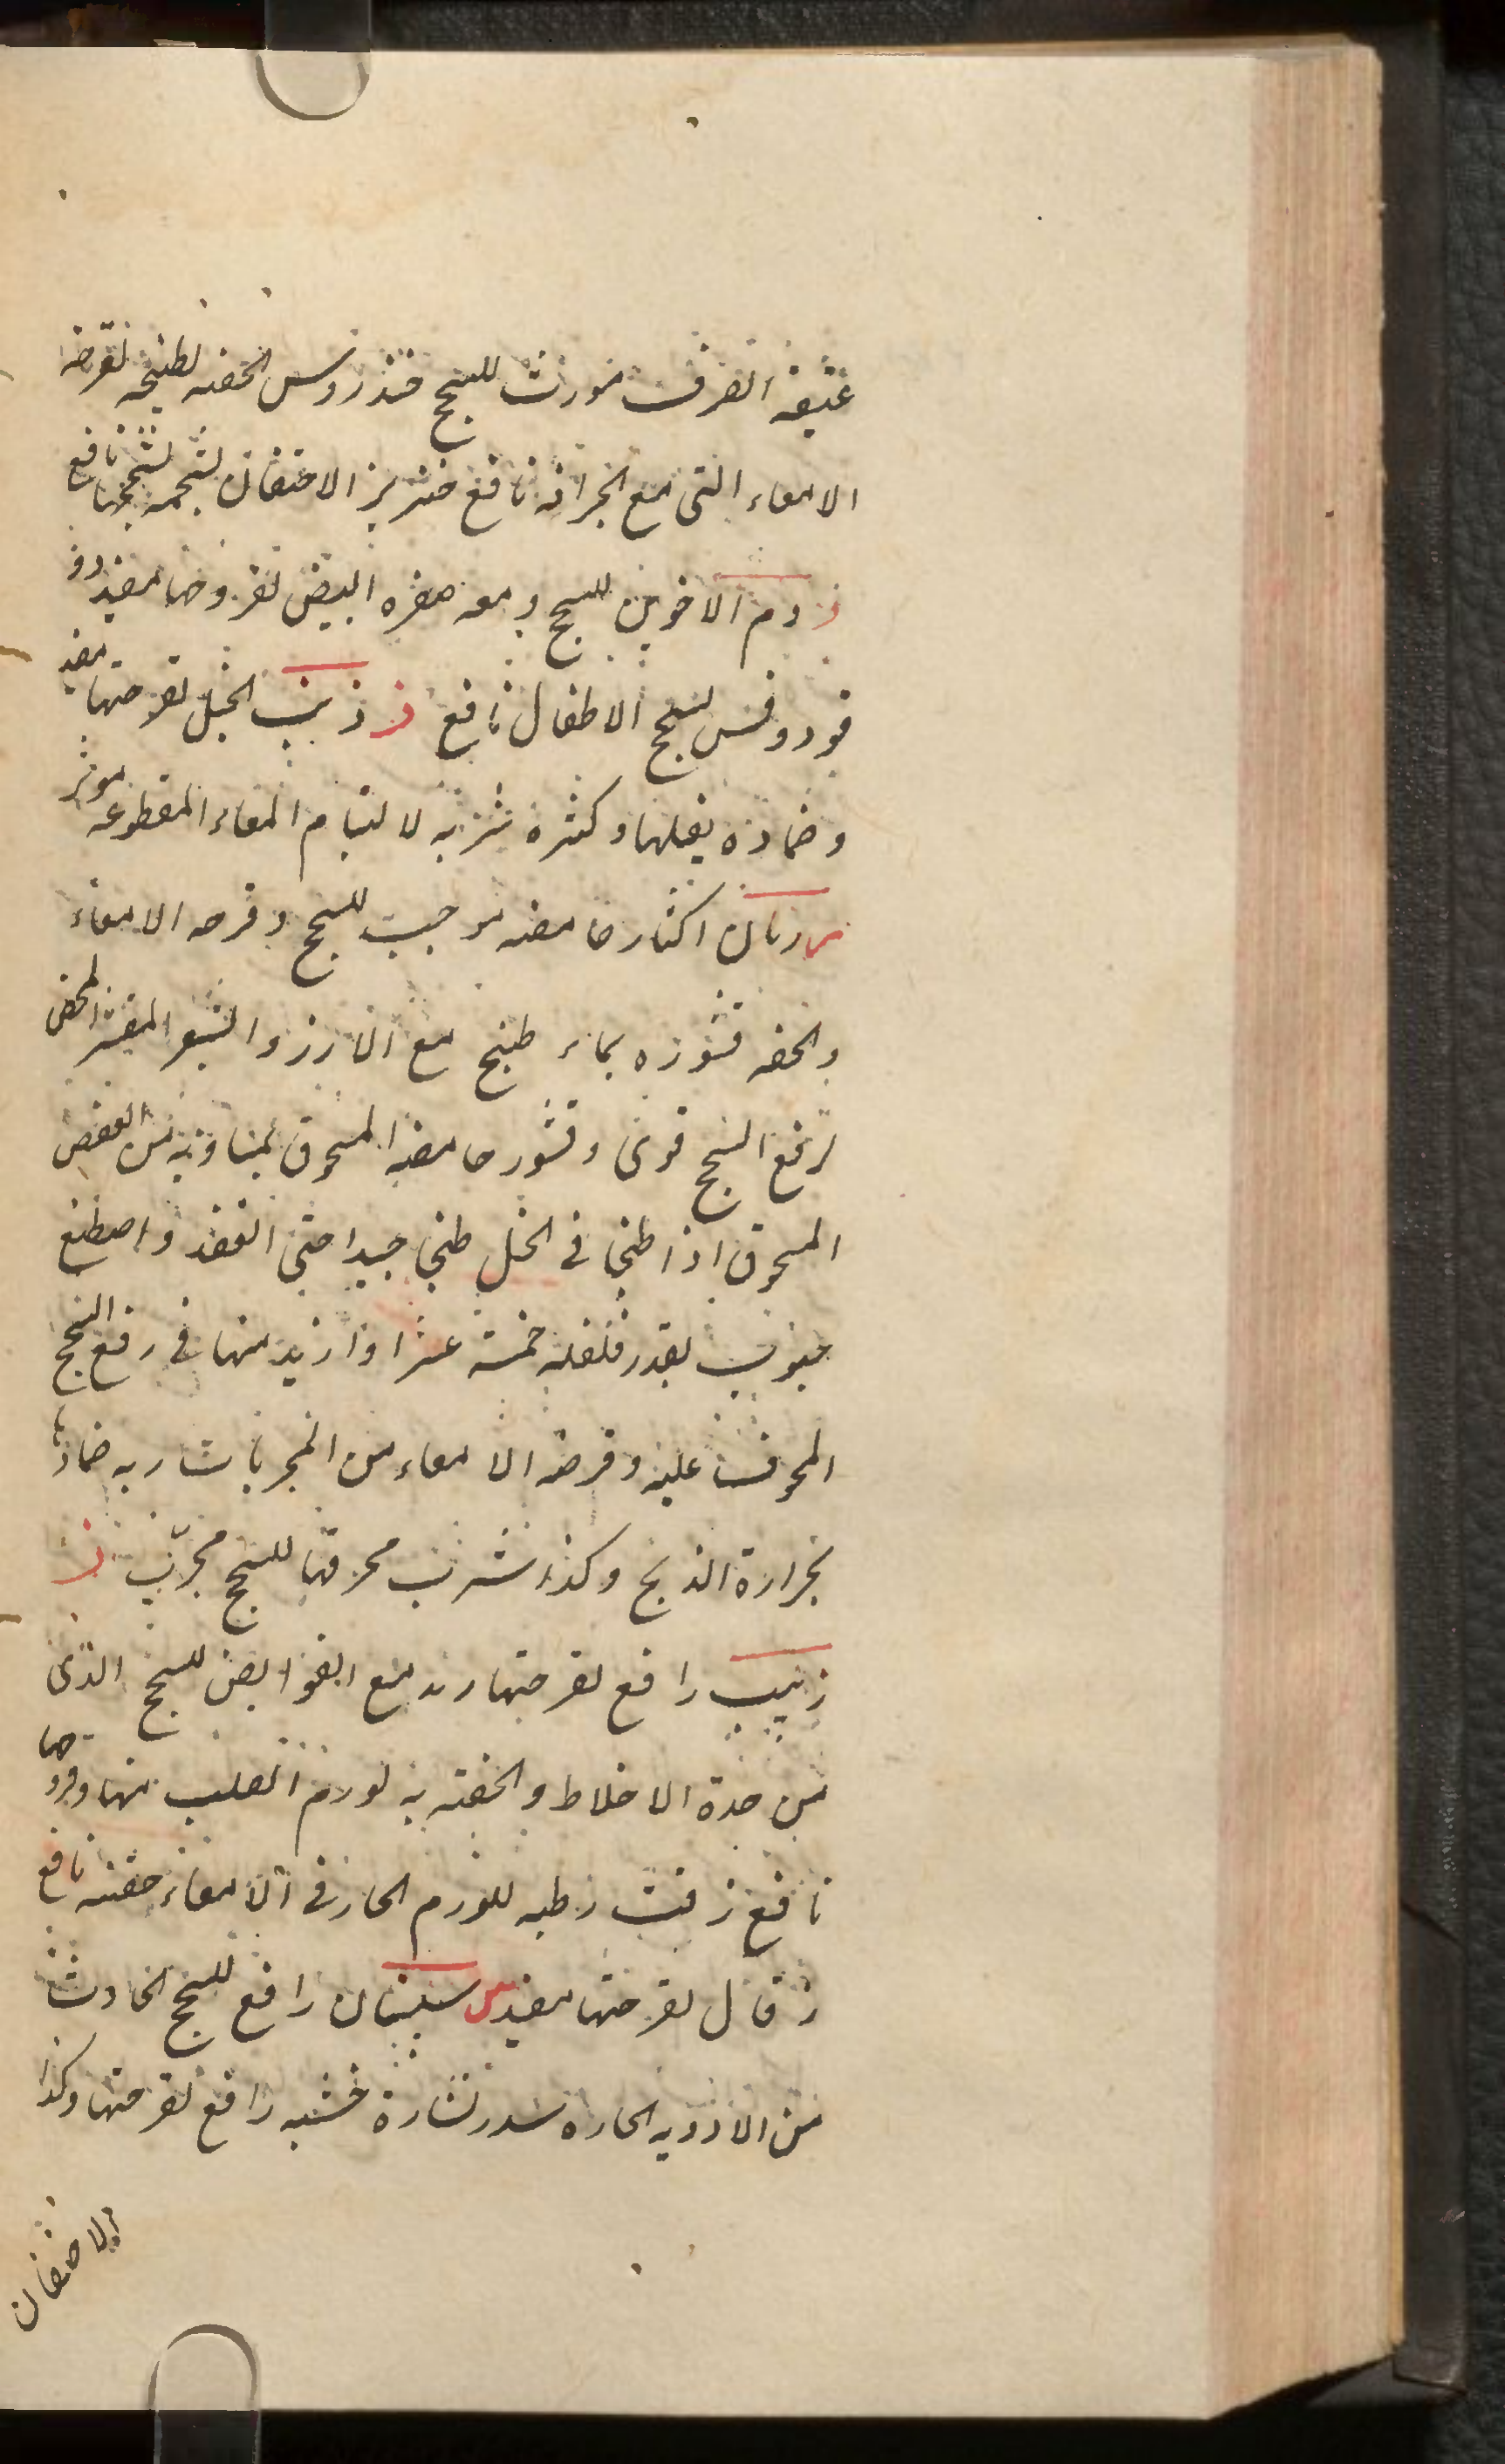 عتيقه الصرف مورث للسحج خندروس الحقنه لطبيخه لقرحه
الامعاء التى مع الحرارة نافع خنزير الاحتقان لشحمه لسحجها نافع
د دم الاخوين للسحج ومع صفره البيض لقروحها مفيد دو
قودوقس لسحج الاطفال نافع ذ ذنب الخيل لقرحتها مفيد
وضماده يفعلها وكثرة شربه لالتيام المعاء المقطوعه موثر
ر رمان اكثار حامضه موجب للسحج وقرحه الامعاء
والحقنه قشوره بماء طبخ مع الارز والشعير المقشر المحمص
لرفع السحج قوى وقشور حامضه المسحوق بمساويه من العفص
المسحوق اذا طبخا فى الخل طبخا جيدا حتى انعقد واصطنع
حبوب بقدر فلفله خمسة عشر او ازيد منها فى رفع السحج
المخوف عليه وقرحه الامعاء من المجربات
بحرارة الذبح وكذا شرب محرقها للسحج مجرب ز
زبيب رافع لقرحتها مع القوابض للسحج الذى
من حدة الاخلاط والحقنه به لورم الصلب منها وقروحها
نافع زفت رطبه للورم الحار فى الامعاء حقنه نافع
لقرحتها مفيد س سپستان رافع للسحج الحادث
من الادويه الحاره سدر نشارة خشبه رافع لقرحتها وكذا
الاحتقان